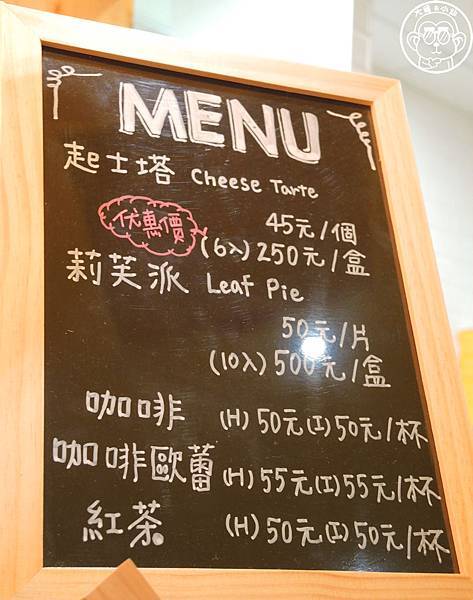 MENU
起士塔 Cheese Tarte
45元/個
优惠價 (6入) 250元/盒
莉芙派 Leaf Pie
50元/片
(10入) 500元/盒
咖啡 (H) 50元(I) 50元/杯
咖啡歐蕾 (H) 55元(I) 55元/杯
紅茶 (H) 50元(I) 50元/杯